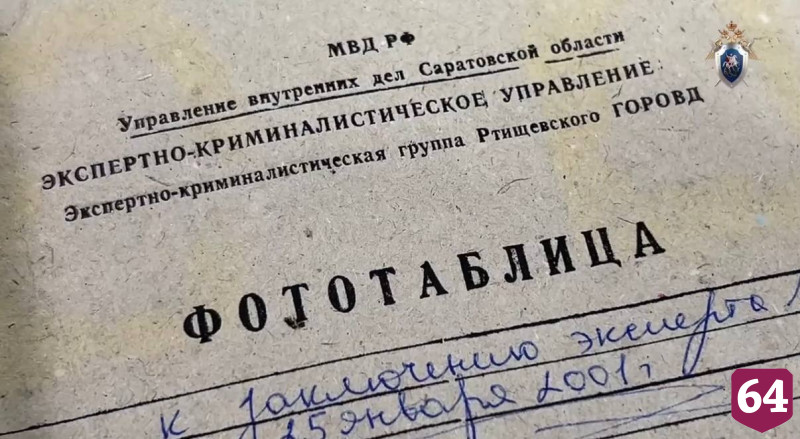 МВД РФ
Управление внутренних дел Саратовской области
ЭКСПЕРТНО-КРИМИНАЛИСТИЧЕСКОЕ УПРАВЛЕНИЕ
Экспертно-криминалистическая группа Ртищевского ГОРОВД
ФОТОТАБЛИЦА
к заключению эксперта
25 января 2001 г
64